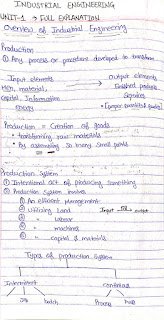 INDUSTRIAL ENGINEERING
UNIT-1 → FULL EXPLANATION
Overview of Industrial Engineering
Production
① Any process or procedure developed to transform
Input elements → Output elements
Men, material, Finished products
Capital Information Services
energy
Production = Creation of goods
• transforming raw materials
• By assembling so many small parts
Production System
① Intentional act of producing something
② Production system involves
① An efficient management
② Utilizing Land Input output
③ " labour
④ " machines
⑤ " capital & materials
Types of production System
Intermittent Continuous
Job batch Process